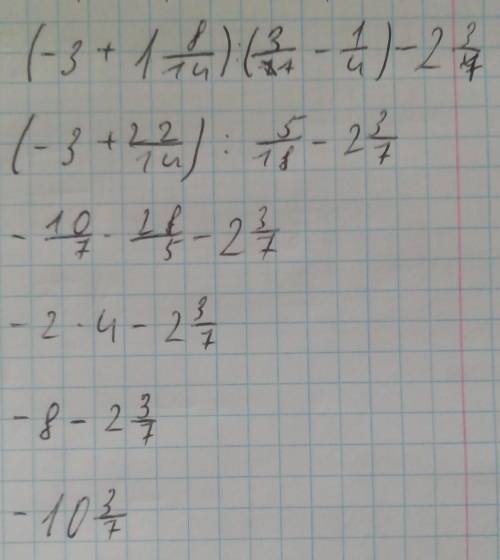 (-3 + 1 8/14):(3/7 - 1/4) - 2 3/7
(-3 + 22/14) : 5/18 - 2 3/7
- 10/7 · 28/5 - 2 3/7
- 2 · 4 - 2 3/7
- 8 - 2 3/7
- 10 3/7